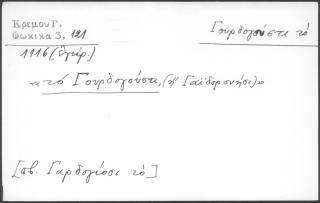 Κρεμου Γ.
Φωκικα 3, 121
Γουρδογούστε τό
1116 (Ἐγειρ.)
«τό Γουρδογούστε, (ἤ Γαϊδορονήσι)»
[σβ. Γαρδογιόσι τό]